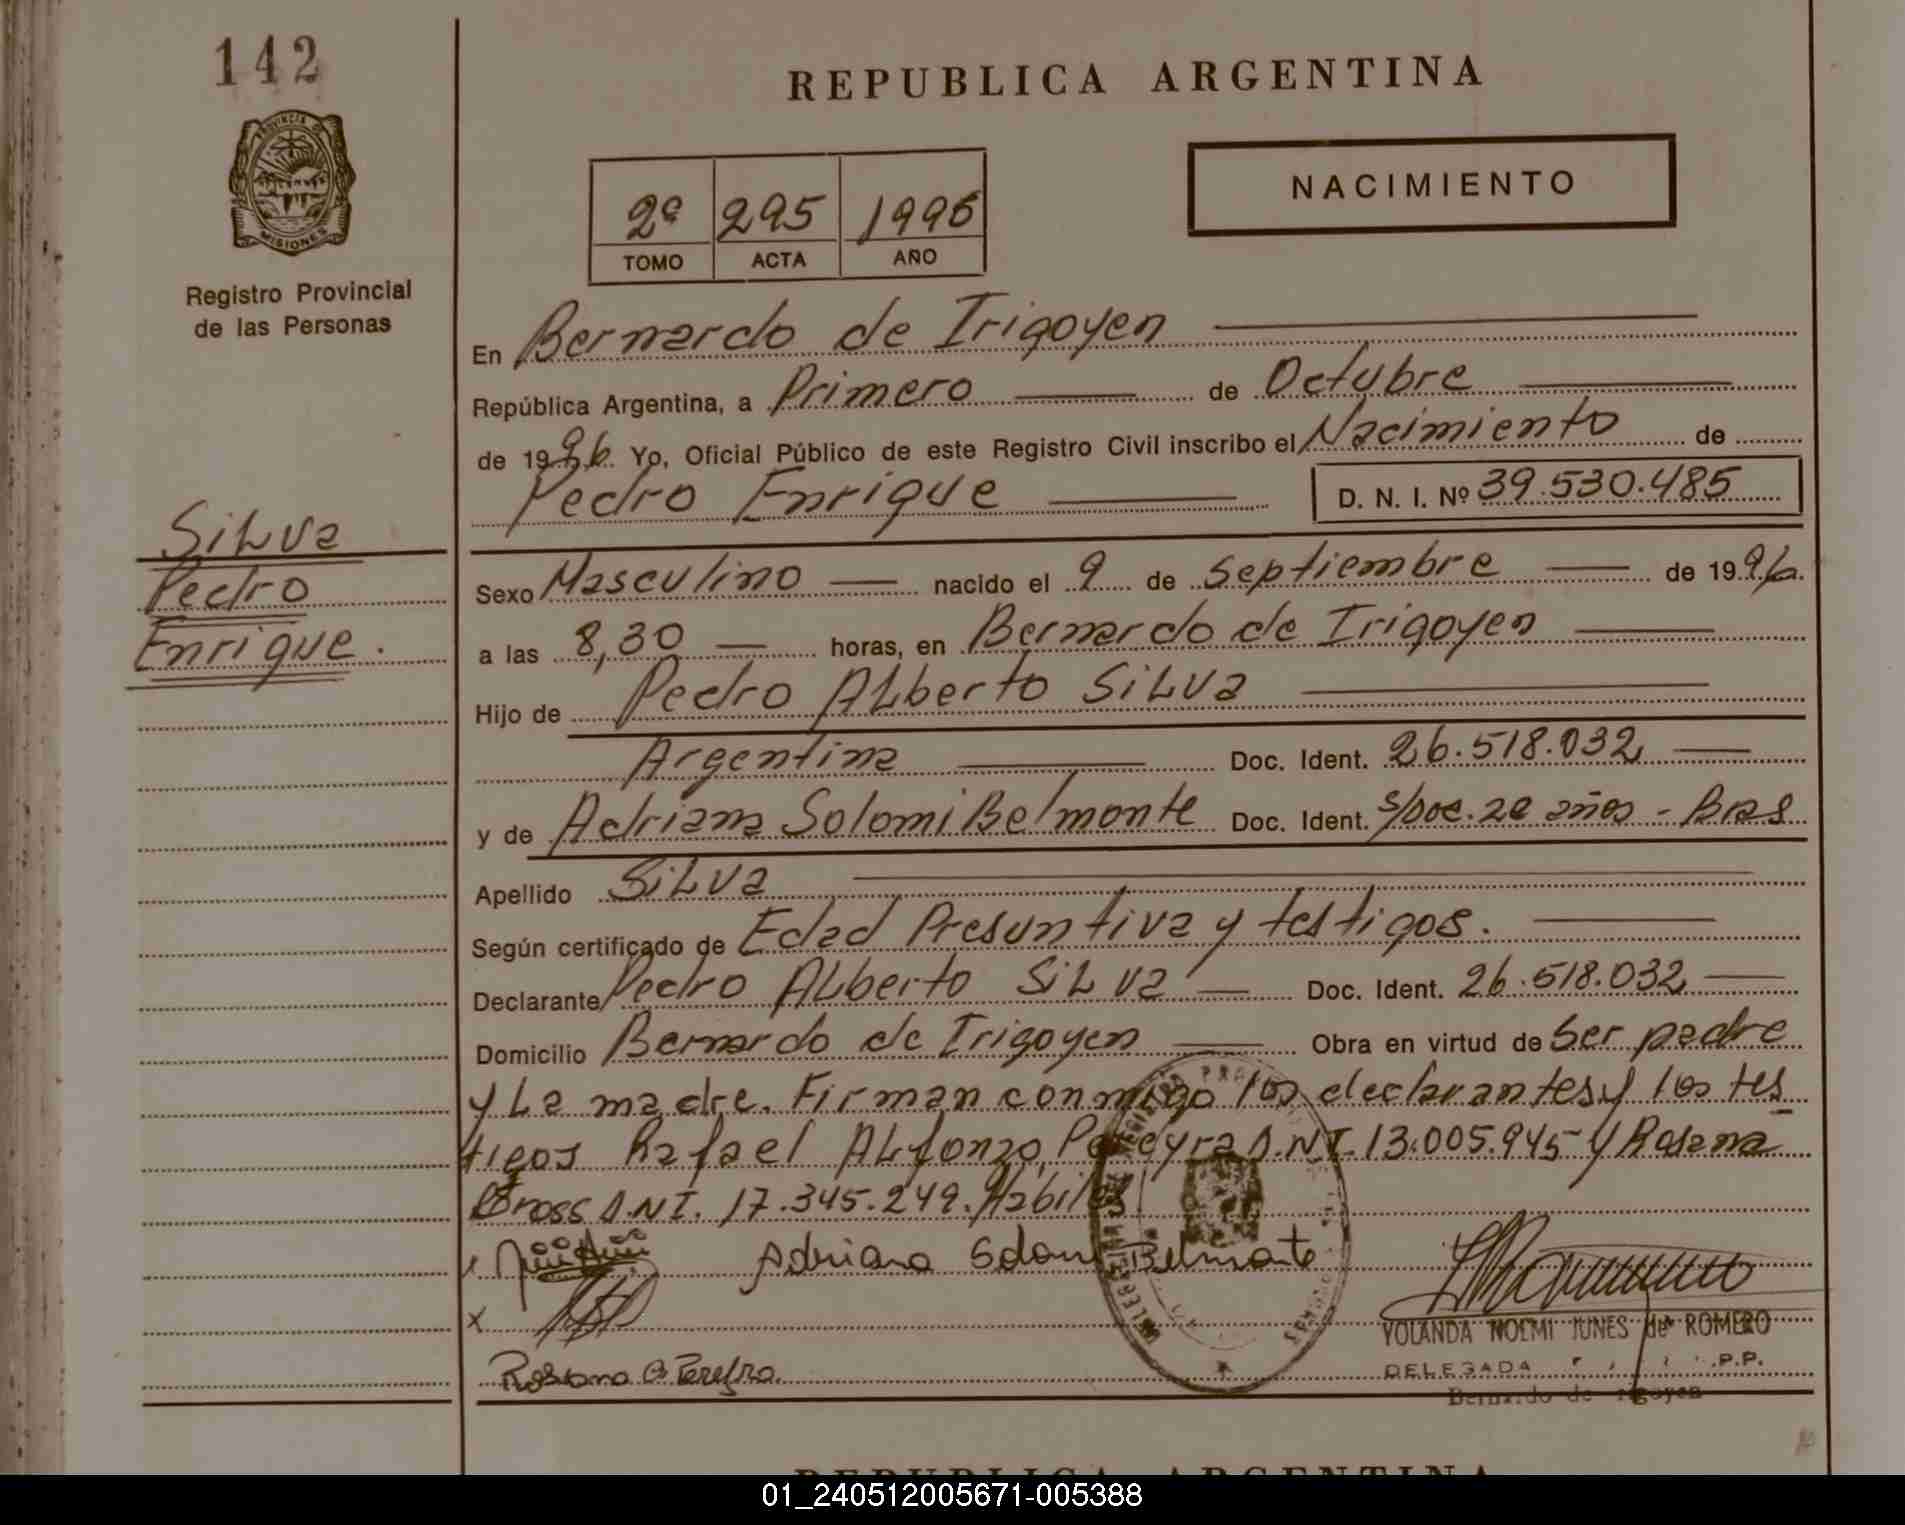 142
REPUBLICA ARGENTINA
PROVINCIA DE
MISIONES
NACIMIENTO
2º 295 1996
TOMO ACTA AÑO
Registro Provincial
de las Personas
En Bernardo de Irigoyen
República Argentina, a Primero de Octubre
de 1996 Yo, Oficial Público de este Registro Civil inscribo el Nacimiento de
Pedro Enrique D. N. I. Nº 39.530.485
Silva
Pedro
Enrique.
Sexo Masculino nacido el 9 de Septiembre de 1996.
a las 8,30 horas, en Bernardo de Irigoyen
Hijo de Pedro Alberto Silva
Argentina Doc. Ident. 26.518.032
y de Adriana Solomi Belmonte Doc. Ident. s/Doc. 20 años - Bras
Apellido Silva
Según certificado de Edad Presuntiva y testigos.
Declarante Pedro Alberto Silva Doc. Ident. 26.518.032
Domicilio Bernardo de Irigoyen Obra en virtud de Ser padre
y La madre. Firman conmigo los declarantes y los tes
tigos Rafael Alfonzo Pereyra D.N.I. 13.005.945 y Rosana
Bross D.N.I. 17.345.249. Habiles
Adriana Solomi Belmonte
x
YOLANDA NOEMI JUNES de ROMERO
DELEGADA P.P.
Bernardo de Irigoyen
REPUBLICA ARGENTINA
01_240512005671-005388